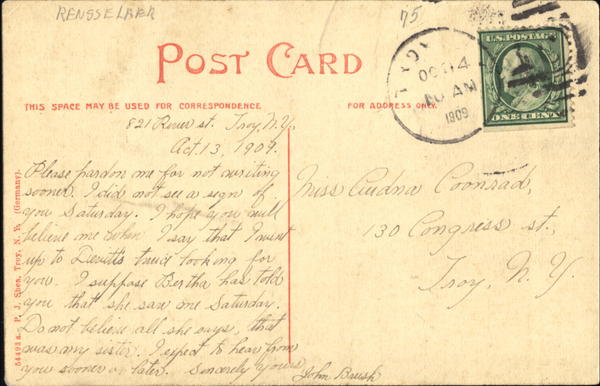 RENSSELAER
75
POST CARD
THIS SPACE MAY BE USED FOR CORRESPONDENCE.
FOR ADDRESS ONLY.
TROY
OCT 14
AM
1909
U.S. POSTAGE
ONE CENT
821 River st. Troy, N.Y.
Oct. 13, 1909.
Please pardon me for not writing
sooner. I did not see a sign of
you Saturday. I hope you will
believe me when I say that I went
up to twice looking for
you. I suppose Bertha has told
you that she saw me Saturday.
Do not believe all she says, that
was my sister. I expect to hear from
you sooner or later. Sincerely yours
John Brush
Miss Coonrad,
130 Congress st.,
Troy, N. Y.
54492a - P. J. Shea, Troy, N. Y. (Germany).